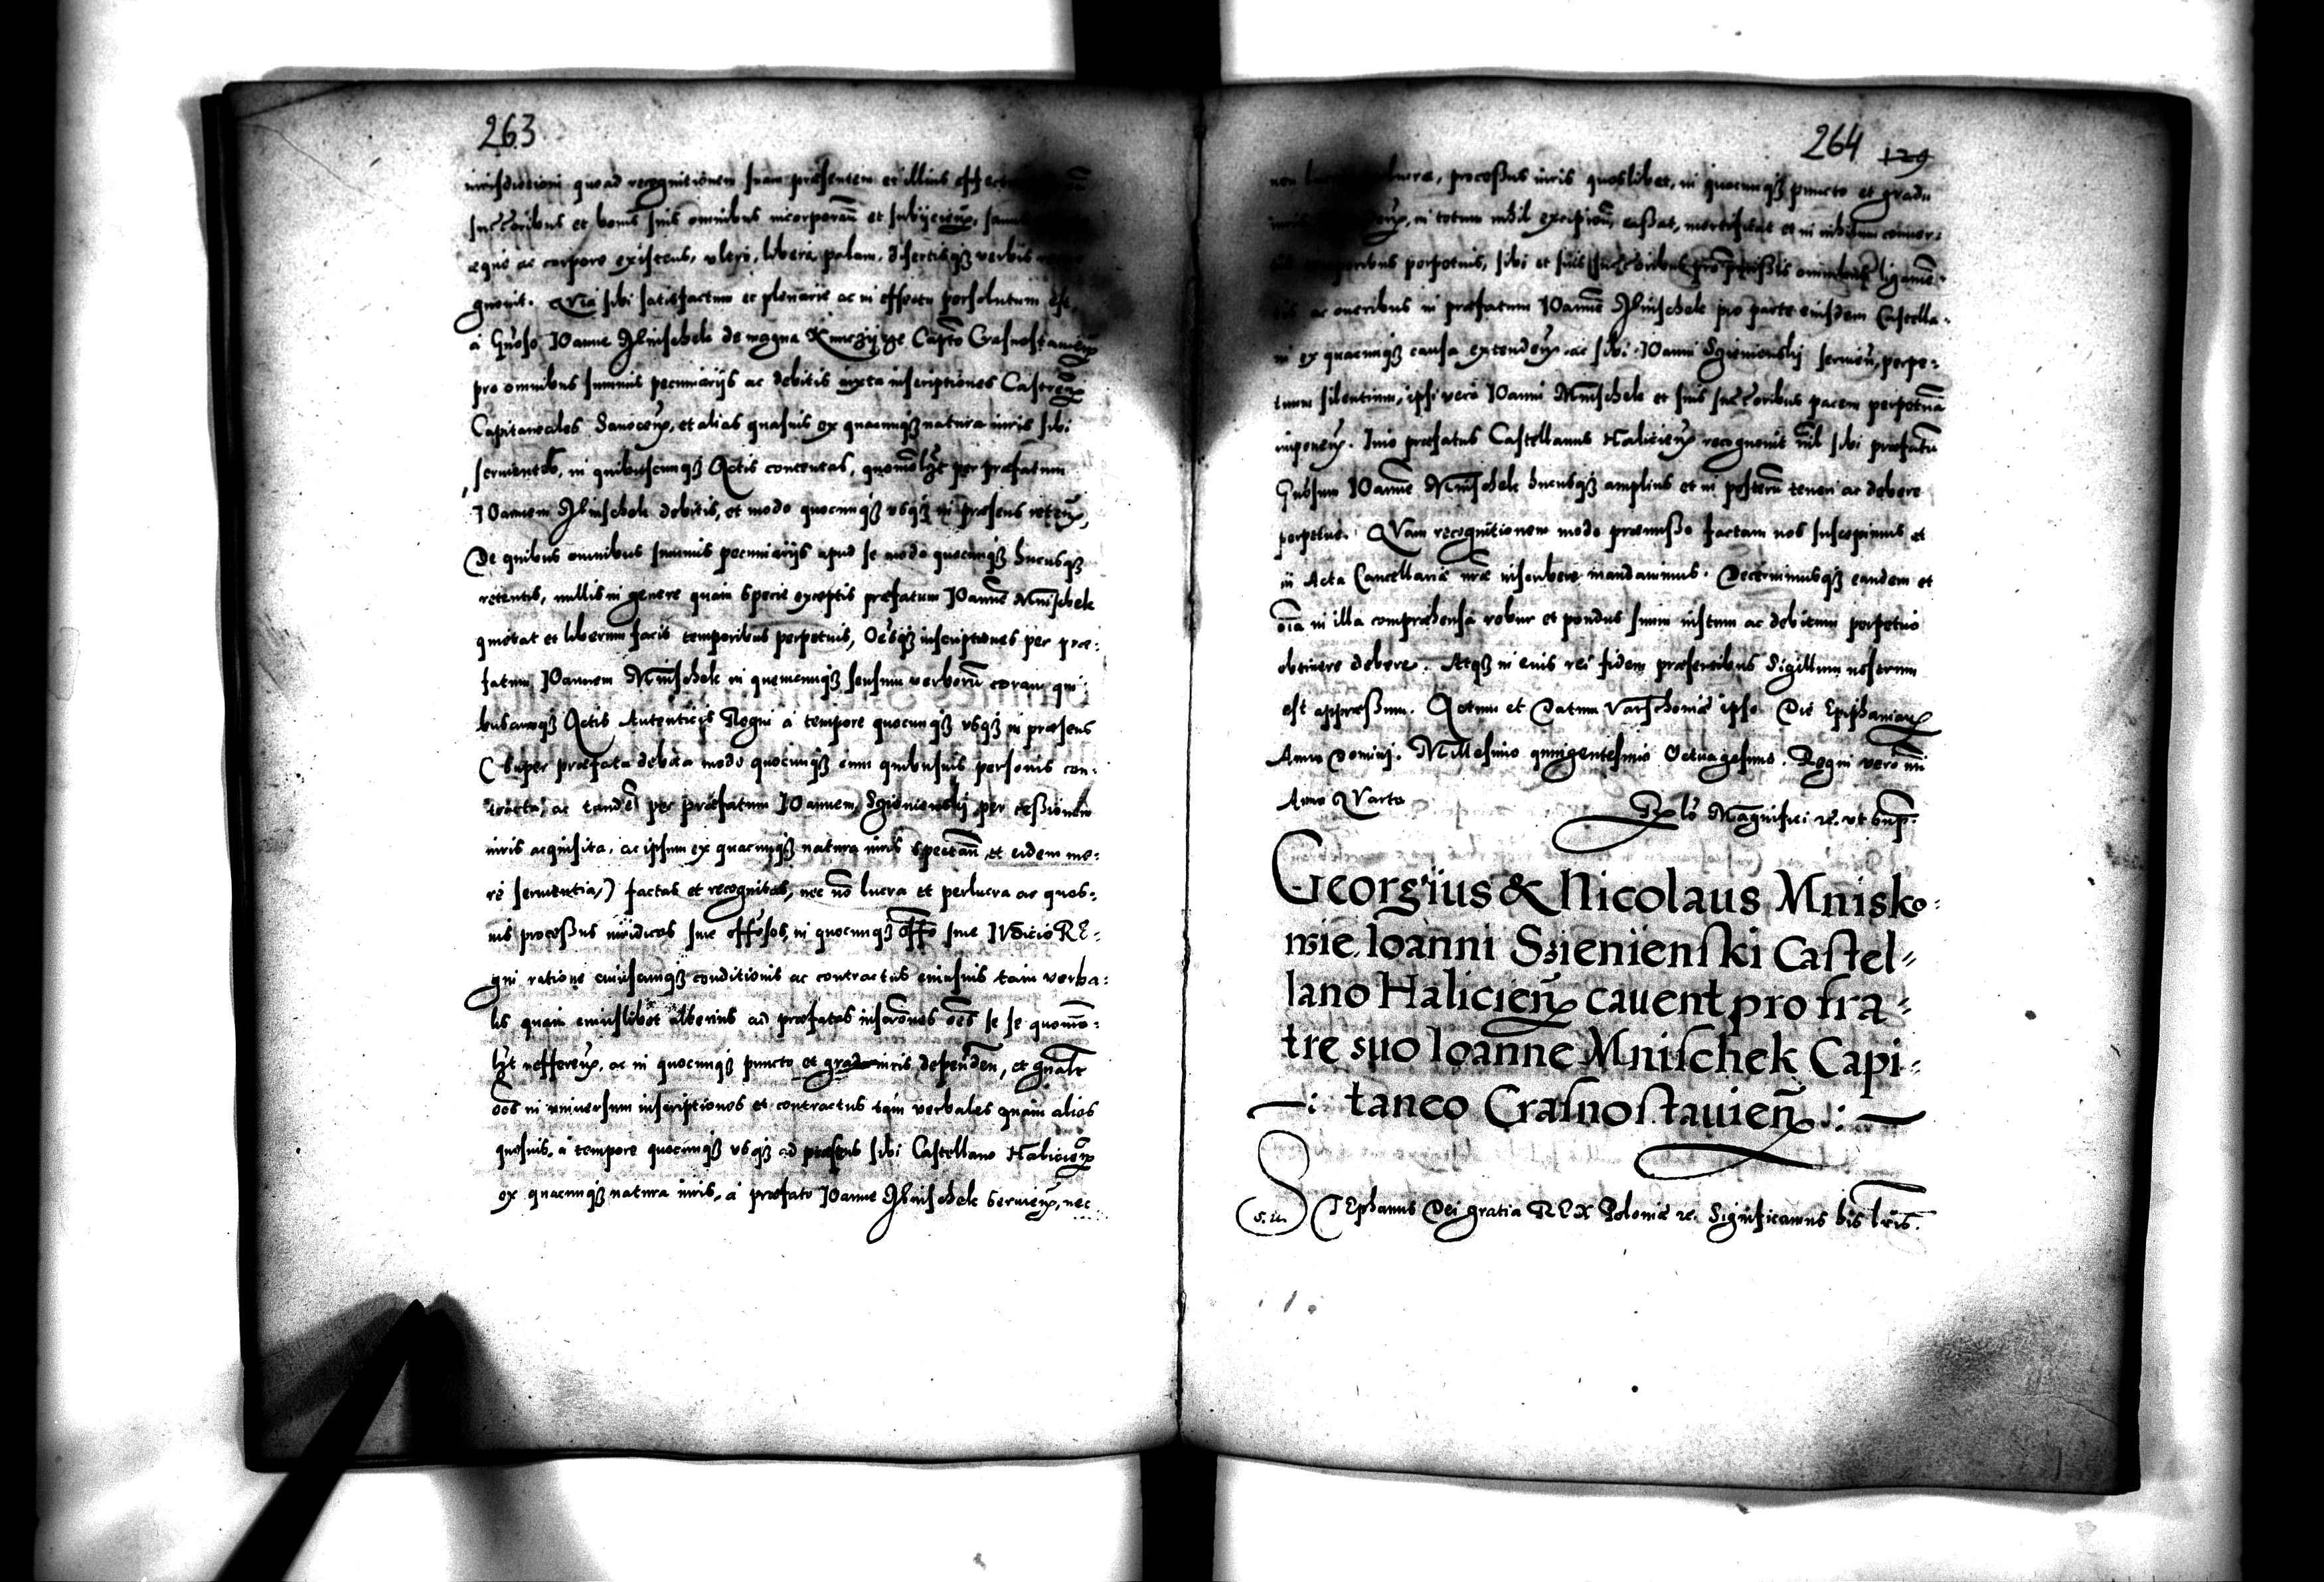 263
iurisdictioni quoad recognitionem suam præsentem et illius
succ̄oribus et bonis suis omnibus incorporan̄ et subijcien̄,
æque ac corpore existens, ultro, libere, palam, disertisq̨ verbis
gnovit. QVia sibi satisfactum et plenarie ac in effectu persolutum est,
à Gn̄oso IOanne Mnischek de magna Kunczijcze Cap̄to Crasnostawien̄
pro omnibus summis pecuniarijs ac debitis iuxta inscriptiones Castren̄
Capitaneales Sanocen̄, et alias quasuis ex quacunq̨ natura iuris sibi
seruientes, in quibuscunq̨ Actis contentas, quomōl̄t per præfatum
IOannem Mnischek debitis, et modo quocunq̨ vsq̨ in præsens reten̄,
De quibus omnibus summis pecuniarijs apud se modo quocunq̨ hucusq̨
retentis, nullis in genere quam specie exceptis præfatum IOannē Mnischek
quietat et liberum facit temporibus perpetuis, Oēsq̨ inscriptiones per præ:
fatum IOannem Mnischek in quemcunq̨ sensum verborū coram qui
buscunq̨ Actis Autenticis Regni à tempore quocunq̨ vsq̨ in præsens
(super præfata debita modo quocunq̨ cum quibusuis personis con:
tracta, ac tandē per præfatum IOannem Szienienskij per cessionem
iuris acquisita, ac ipsum ex quacunq̨ natura iuris spectan̄, et eidem me:
re seruientia,) factas et recognitas, nec nō lucra et perlucra ac quos:
uis processus iuridicos siue off̄osos, in quocunq̨ off̄o siue IVdicio RE:
gni ratione cuiuscunq̨ conditionis ac contractus cuiusuis tam verba:
lis quam cuiuslibet alterius ad præfatas inscrōnes oēs se se quomō:
l̄t refferen̄, ac in quocunq̨ puncto et gradu iuris dependen̄, et gn̄alr
oēs in uniuersum inscriptiones et contractus tam verbales quam alios
quosuis, à tempore quocunq̨ vsq̨ ad præsens sibi Castellano Halicien̄
ex quacunq̨ natura iuris, à præfato IOanne Mnischek seruien̄, nec
264 129
processus iuris quoslibet, in quocunq̨ puncto et gradu
in totum nihil excipien̄, cassat, mortificat et in nihilum conuer:
temporibus perpetuis, sibi et suis succ̄oribus
ac oneribus in præfatum IOannē Mnischek pro parte eiusdem Castella:
ni ex quacunq̨ causa extenden̄, ac sibi IOanni Szienienskij seruien̄, perpe:
tuum silentium, ipsi vero IOanni Mnischek et suis succ̄oribus pacem perpetuā
imponen̄. Imo præfatus Castellanus Halicien̄ recognouit nīl sibi præfatū
Gn̄osum IOannē Mnischek hucusq̨ amplius et in posterū teneri ac debere
perpetue. QVam recognitionem modo præmisso factam nos suscepimus et
in Acta Cancellariæ nr̄æ inscribere mandauimus. Decernimusq̨ eandem et
oīa in illa comprehensa robur et pondus suum iustum ac debitum perpetuo
obtinere debere. Atq̨ in cuius rei fidem præsentibus Sigillum nostrum
est appressum. Actum et Datum Varschouiæ ipso Die Epiphaniarū
Anno Dominj. Millesimo quingentesimo Octuagesimo. Regni vero nr̄i
Anno QVarto
Rel̄o Magnifici ꝛc. vt sup̄.
Georgius & Nicolaus Mnisko-
wie Ioanni Szienienski Castel-
lano Halicien̄ cauent pro fra-
tre suo Ioanne Mnischek Capi-
—: taneo Crasnostauien̄ :—
S.R.
STEphanus Dei gratia REX Poloniæ ꝛc. Significamus his lr̄is.